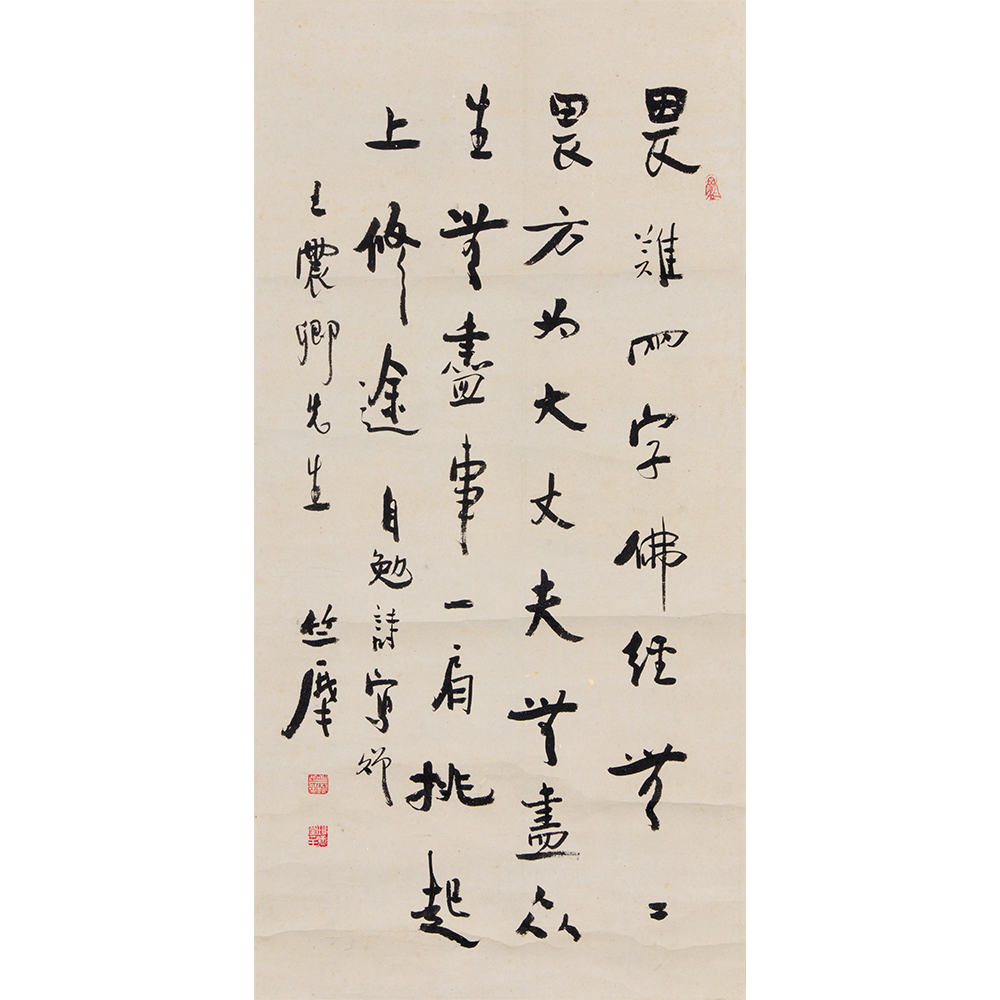 畏難兩字佛經無〻
畏方為大丈夫無盡眾
生無盡事一肩挑起
上修途 自勉詩寫奉
王震卿先生 竺摩